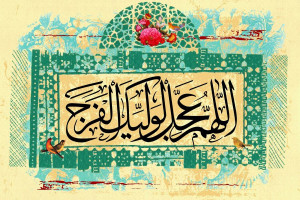 اللهم عجل لولیك الفرج